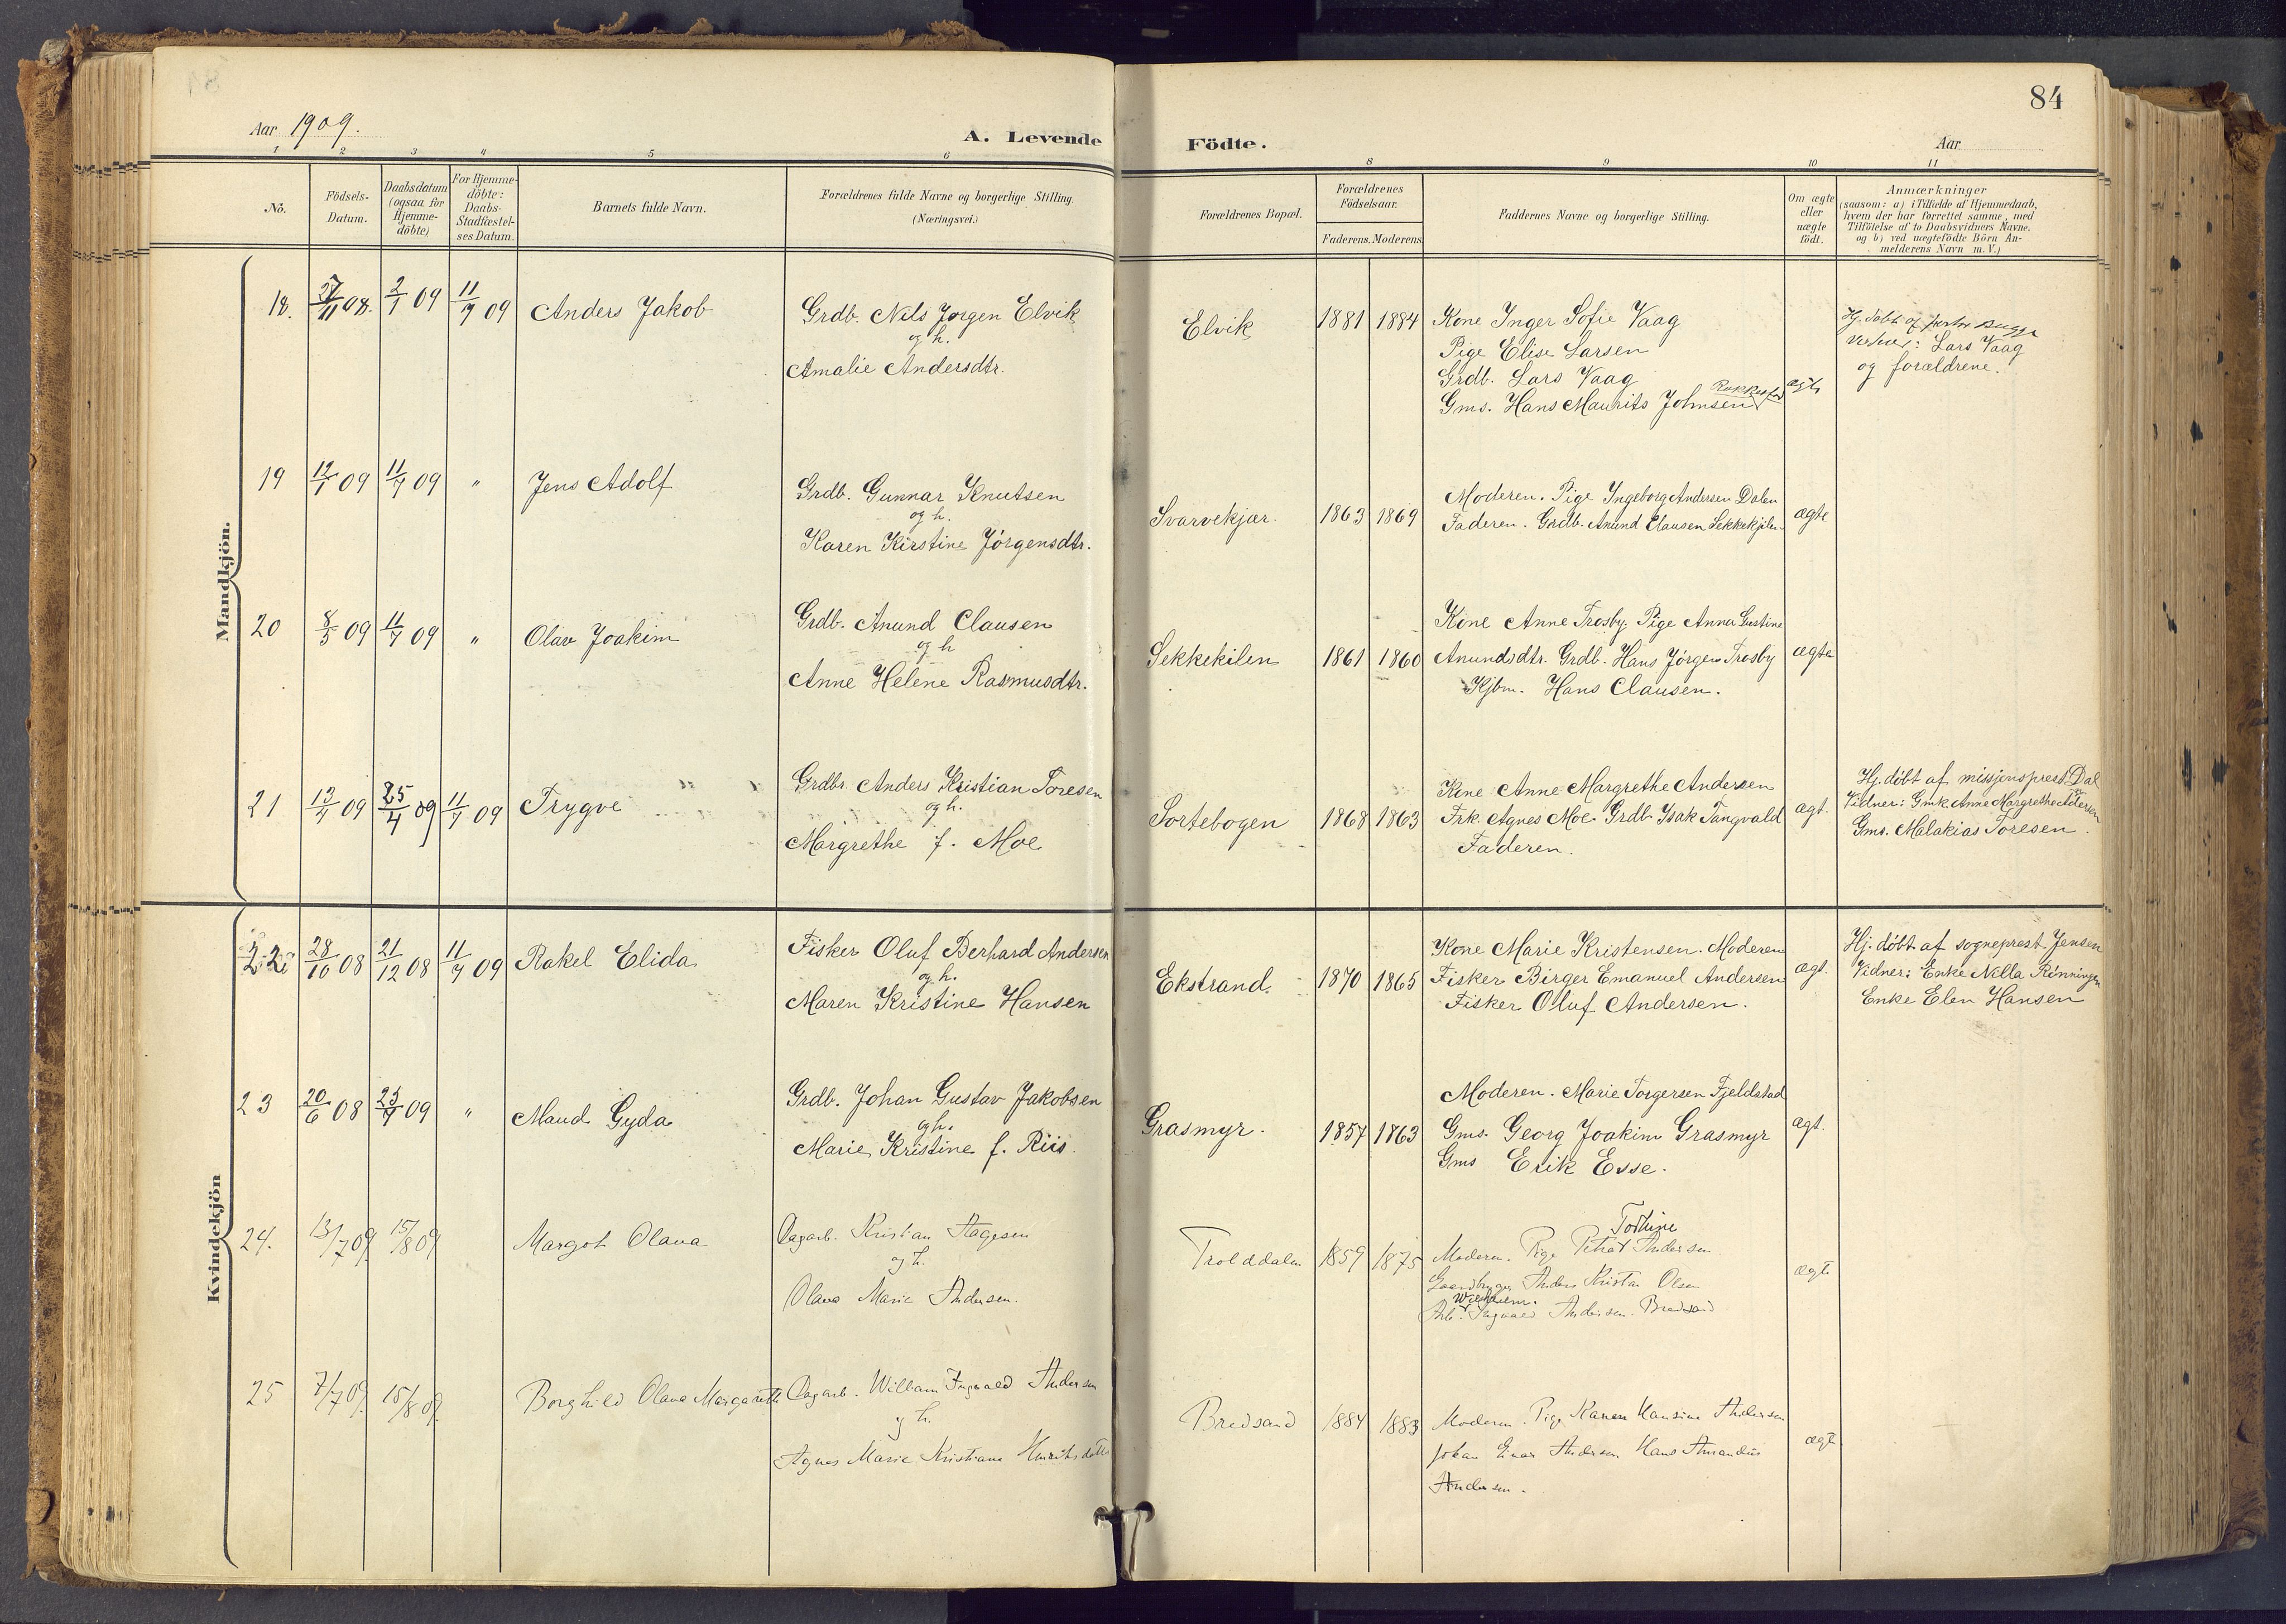 84
Aar 1909.
A. Levende Födte.
Aar
1 2 3 4 5 6 8 9 10 11
No.
Födsels-
Datum.
Daabsdatum
(ogsaa for
Hjemme-
döbte)
For Hjemme-
döbte:
Daabs-
Stadfæstel-
ses Datum.
Barnets fulde Navn.
Forældrenes fulde Navne og borgerlige Stilling.
(Næringsvei.)
Forældrenes Bopæl.
Forældrenes
Födselsaar.
Faderens. Moderens
Faddernes Navne og borgerlige Stilling.
Om ægte
eller
uægte
födt.
Anmærkninger
(saasom: a) i Tilfælde af Hjemmedaab,
hvem der har forrettet samme, med
Tilföielse af to Daabsvidners Navne.
og b) ved uægtefödte Börn An-
melderens Navn m.V.)
Mandkjön.
18. 27/11 08. 2/1 09 11/7 09 Anders Jakob
Grdb. Nils Jørgen Elvik
og h.
Amalie Andersdtr.
Elvik 1881 1884
Kone Inger Sofie Vaag
Pige Elise Larsen
Grdb. Lars Vaag
Gms. Hans Maurits Johnsen
ægte
Hj. døbt af Bugge
Vidner: Lars Vaag
og forældrene.
19 12/1 09 11/7 09 " Jens Adolf
Grdb. Gunnar Knutsen
og h.
Karen Kirstine Jörgensdtr.
Svarvekjær. 1863 1869
Moderen. Pige Ingeborg Andersen Dalen
Faderen. Grdb. Anund Clausen Sekkekjilen
ægte
20 8/5 09 11/7 09 " Olav Joakim
Grdb. Anund Clausen
og h
Anne Helene Rasmusdtr.
Sekkekilen 1861 1860
Kone Anne Trosby. Pige Anna Gustine
Anundsdtr. Grdb. Hans Jörgen Trosby
Kjbm. Hans Clausen.
ægte
21 13/4 09 25/4 09) 11/7 09 Trygve
Grdbr. Anders Kristian Toresen
og h.
Margrethe f. Moe
Sortebogen 1868 1863
Kone Anne Margrethe Andersen
Frk. Agnes Moe Grdb. Isak Tangvald
Faderen.
ægt.
Hj. döbt af missjonsprest Dal
Vidner: Gmk Anne Margrethe Andersen
Gms. Malakias Toresen.
Kvindekjön
22 28/10 08 21/12 08 11/7 09 Rakel Elida
Fisker Oluf Berhard Andersen
og h.
Maren Kristine Hansen
Ekstrand. 1870 1865
Kone Marie Kristensen. Moderen
Fisker Birger Emanuel Andersen
Fisker Oluf Andersen.
ægt.
Hj. döbt af sogneprest Jensen
Vidner: Enke Nella Rönningen
Enke Elen Hansen
23 20/6 08 25/7 09 " Maud Gyda
Grdb. Johan Gustav Jakobsen
og h.
Marie Kristine f. Riis.
Grasmyr. 1857 1863
Moderen. Marie Torgersen Fjeldstad
Gms. Georg Joakim Grasmyr
Gms Erik Esse.
ægt.
24. 13/7 09 15/8 09 Margot Olava
Dagarb. Kristian Aagesen
og h.
Olava Marie Andersen.
Trolddalen 1859 1875
Torhine
Moderen. Pige Petra Andersen
Gaardbruger Anders Kristian Olsen
Wilhelm.
Arb. Ingvald Andersen Bredsand
ægte
25 7/7 09. 15/8 09. Borghild Olava Margareth
Dagarb. William Ingvald Andersen
og h.
Agnes Marie Kristiane Henriksdatter
Bredsand 1884 1883
Moderen. Pige Karen Hansine Andersen
Johan Einar Andersen Hans Amandus
Andersen.
ægte